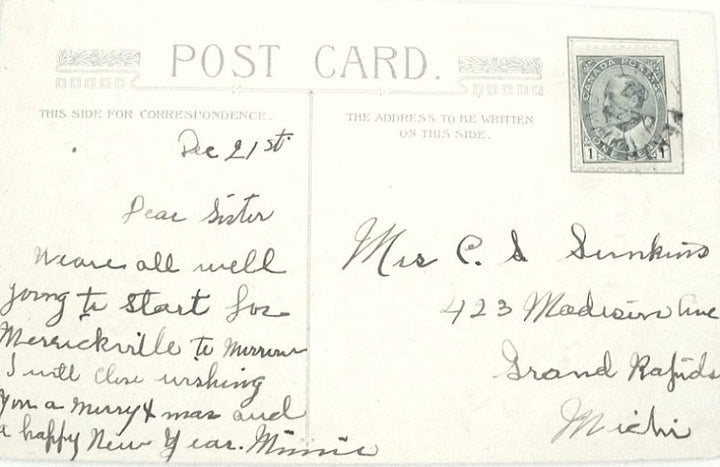 POST CARD.
THIS SIDE FOR CORRESPONDENCE.
THE ADDRESS TO BE WRITTEN
ON THIS SIDE.
CANADA POSTAGE
ONE CENT
1 1
Dec 21st
Dear Sister
We are all well
going to start for
Merrickville to morrow
I will close wishing
you a merry Xmas and
a happy New Year. Minnie
Mrs C. S
423 Madison Ave
Grand Rapids
Mich